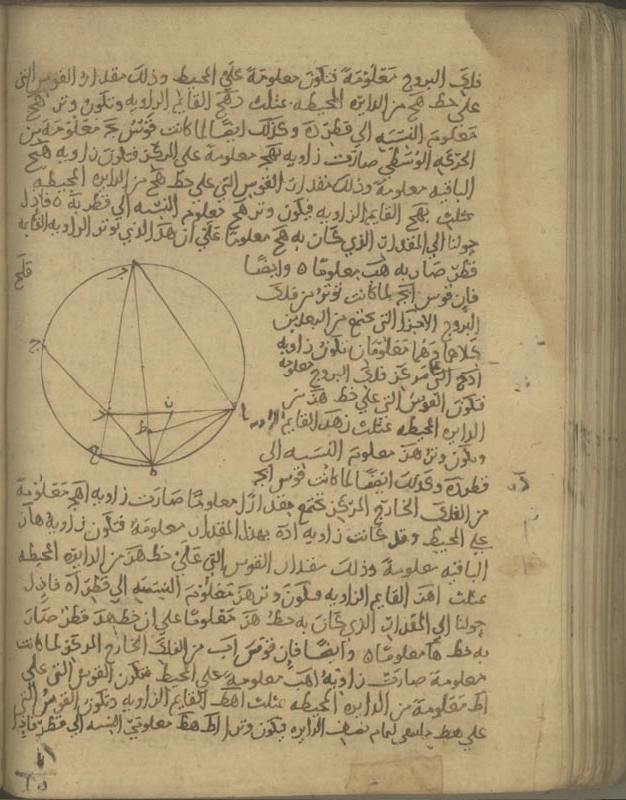 فلك البروج معلومةً فتكون معلومة على المحيط وذلك مقدار القوس التي
على خط هج من الدايره المحيطه بمثلث دهج القايم الزاويه وتكون وتر هج
معلوم النسبه الى قطر ده وكذلك ايضا لما كانت قوس بج معلومة من
الحركه الوسطى صارت زاويه بهج معلومة على المركز فتكون زاويه هج
الباقيه معلومة وذلك مقدار القوس التي على خط هج من الدايره المحيطه
بمثلث بهج القايم الزاويه فيكون وتر هج معلوم النسبه الى قطر به فاذا
حولنا الى المقدار الذي كان به هج معلومًا على ان هذا الذي توتر الزاويه القايمه
قطرٌ صار به هب معلومًا ه وايضًا
فان قوس ابج لما كانت توتر من فلك
البروج الاجزا التي تجتمع من البعدين
كلاهما وهما معلومان تكون زاويه
ادج التي على مركز فلك البروج معلومه
فتكون القوس التي على خط هز من
الدايره المحيطه بمثلث زهد القايم الزاويه
ويكون وتر هز معلوم النسبه الى
قطر ده وكذلك ايضًا لما كانت قوس ابج
من الفلك الخارج المركز تجتمع مقدارًا معلومًا صارت زاويه اهج معلومة
على المحيط وقد كانت زاويه ادج بهذا المقدار معلومة فتكون زاويه هاز
الباقيه معلومة وذلك مقدار القوس التي على خط هز من الدايره المحيطه
بمثلث اهز القايم الزاويه فيكون وتر هز معلوم النسبه الى قطر اه فاذا
حولنا الى المقدار الذي كان به خط هز معلومًا على ان خط هد قطرٌ صار
به خط ها معلومًا ه وايضًا فان قوس اب من الفلك الخارج المركز لما كانت
معلومة صارت زاويه اهب معلومة على المحيط فتكون القوس التي على
اط معلومة من الدايره المحيطه بمثلث اهط القايم الزاويه وتكون القوس التي
على هط ما يبقى لتمام نصف الدايره فيكون وترا اط هط معلومي النسبه الى قطر فاذا
ج
د
ا
ن
ط
ح
ه